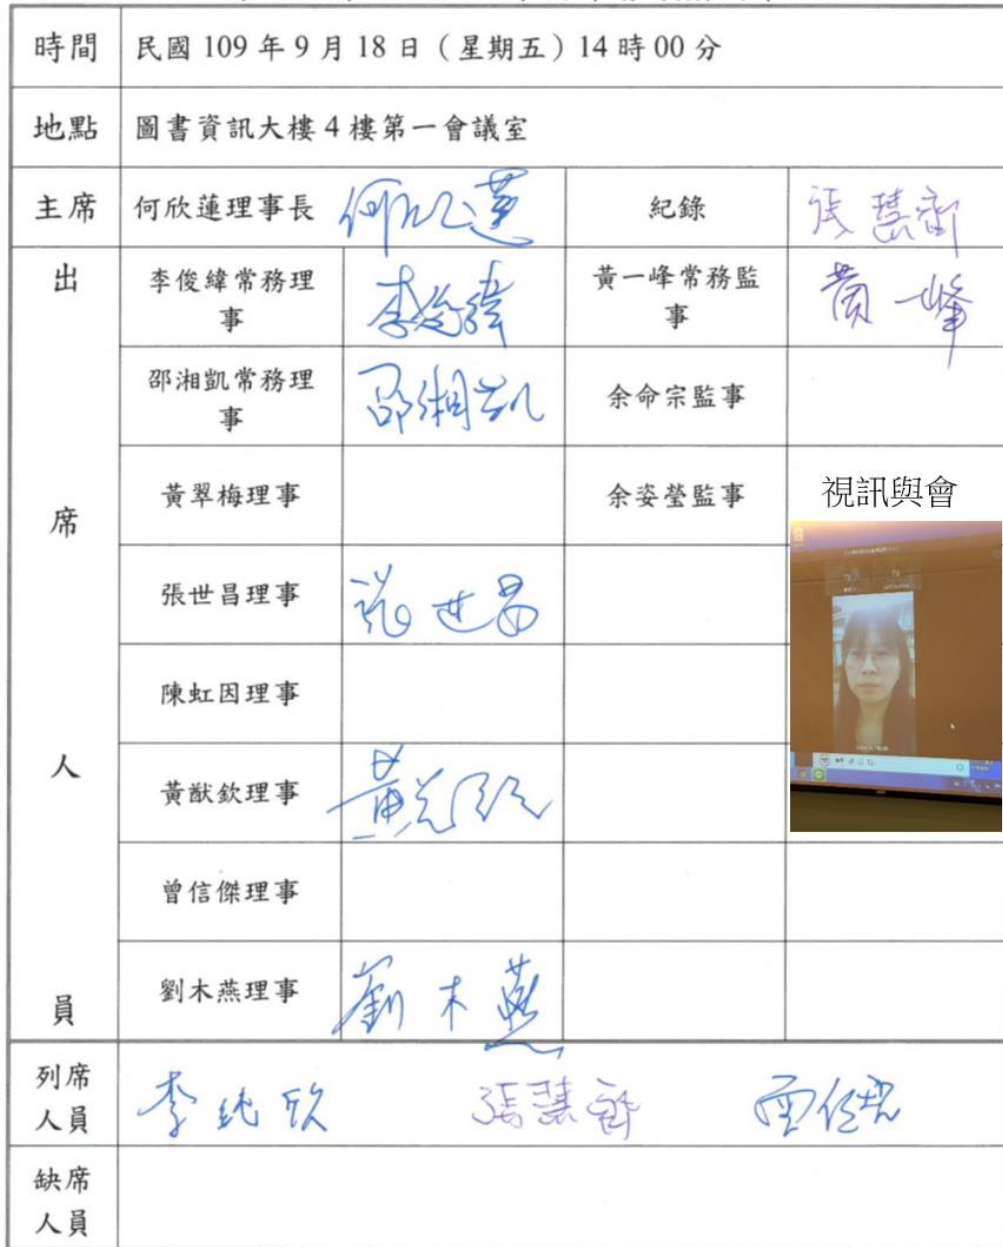 時間 民國 109 年 9 月 18 日（星期五）14 時 00 分
地點 圖書資訊大樓 4 樓第一會議室
主席 何欣蓮理事長 何欣蓮 紀錄 張慧齡
出席人員
李俊緯常務理事 李俊緯 黃一峰常務監事 黃一峰
邵湘凱常務理事 邵湘凱 余命宗監事
黃翠梅理事 余姿瑩監事 視訊與會
張世昌理事 張世昌
陳虹因理事
黃猷欽理事 黃猷欽
曾信傑理事
劉木燕理事 劉木燕
列席人員 李純欣
缺席人員